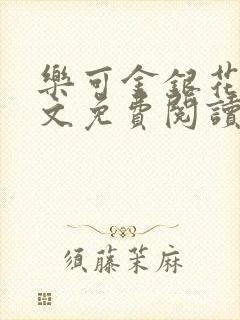 樂可金銀花
文免費閱讀
須藤茉麻